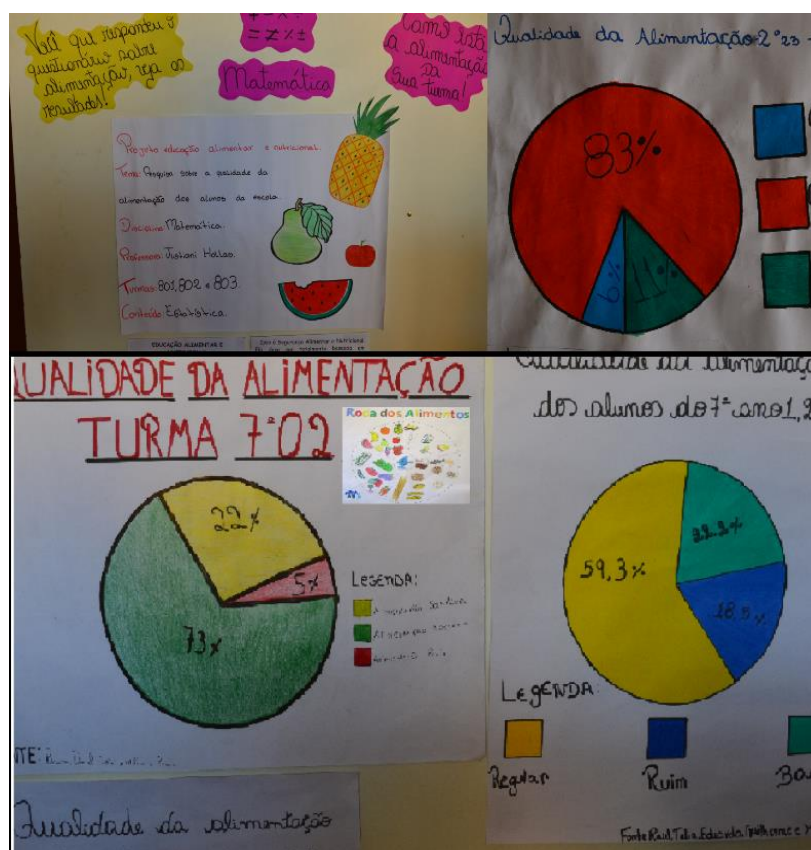 Você que respondeu o
questionário sobre
alimentação, veja os
resultados!
+ - × ÷
= ≠ × ±
Matemática
Como está
a alimentação
da
sua turma!
Projeto educação alimentar e nutricional.
Tema: Pesquisa sobre a qualidade da
alimentação dos alunos da escola.
Disciplina: Matemática.
Turmas: 801, 802 e 803.
Conteúdo: Estatística.
EDUCAÇÃO ALIMENTAR E
Qualidade da Alimentação 2°23
83%
6%
11%
QUALIDADE DA ALIMENTAÇÃO
TURMA 7°02
Roda dos Alimentos
22%
5%
73%
LEGENDA:
NTE:
Qualidade da alimentação
Qualidade da alimentaç
dos alunos do 7° ano 1, 2
59,3%
22,2%
18,5%
LEGENDA:
Regular
Ruim
Bo
Fonte